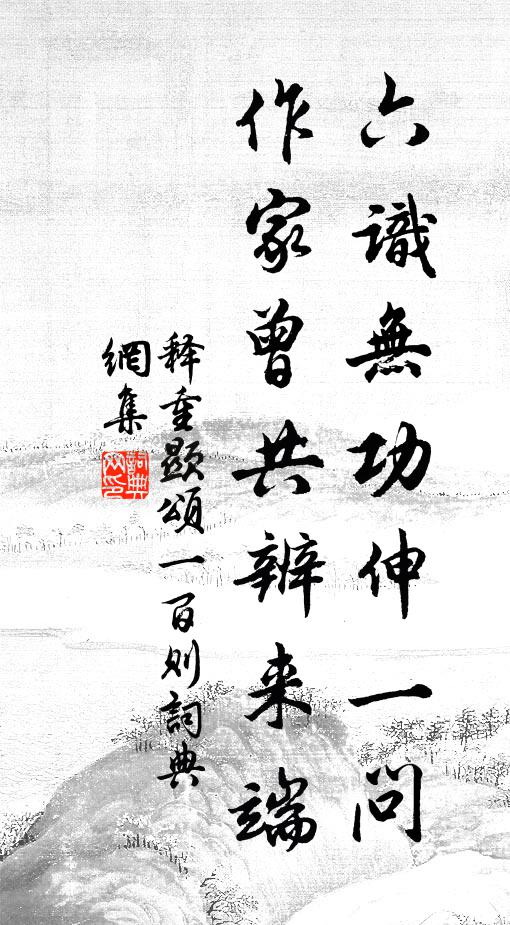 六識無功伸一問
作家曾共辨来端
释重顯頌一百则詞典
網集
詞典網印